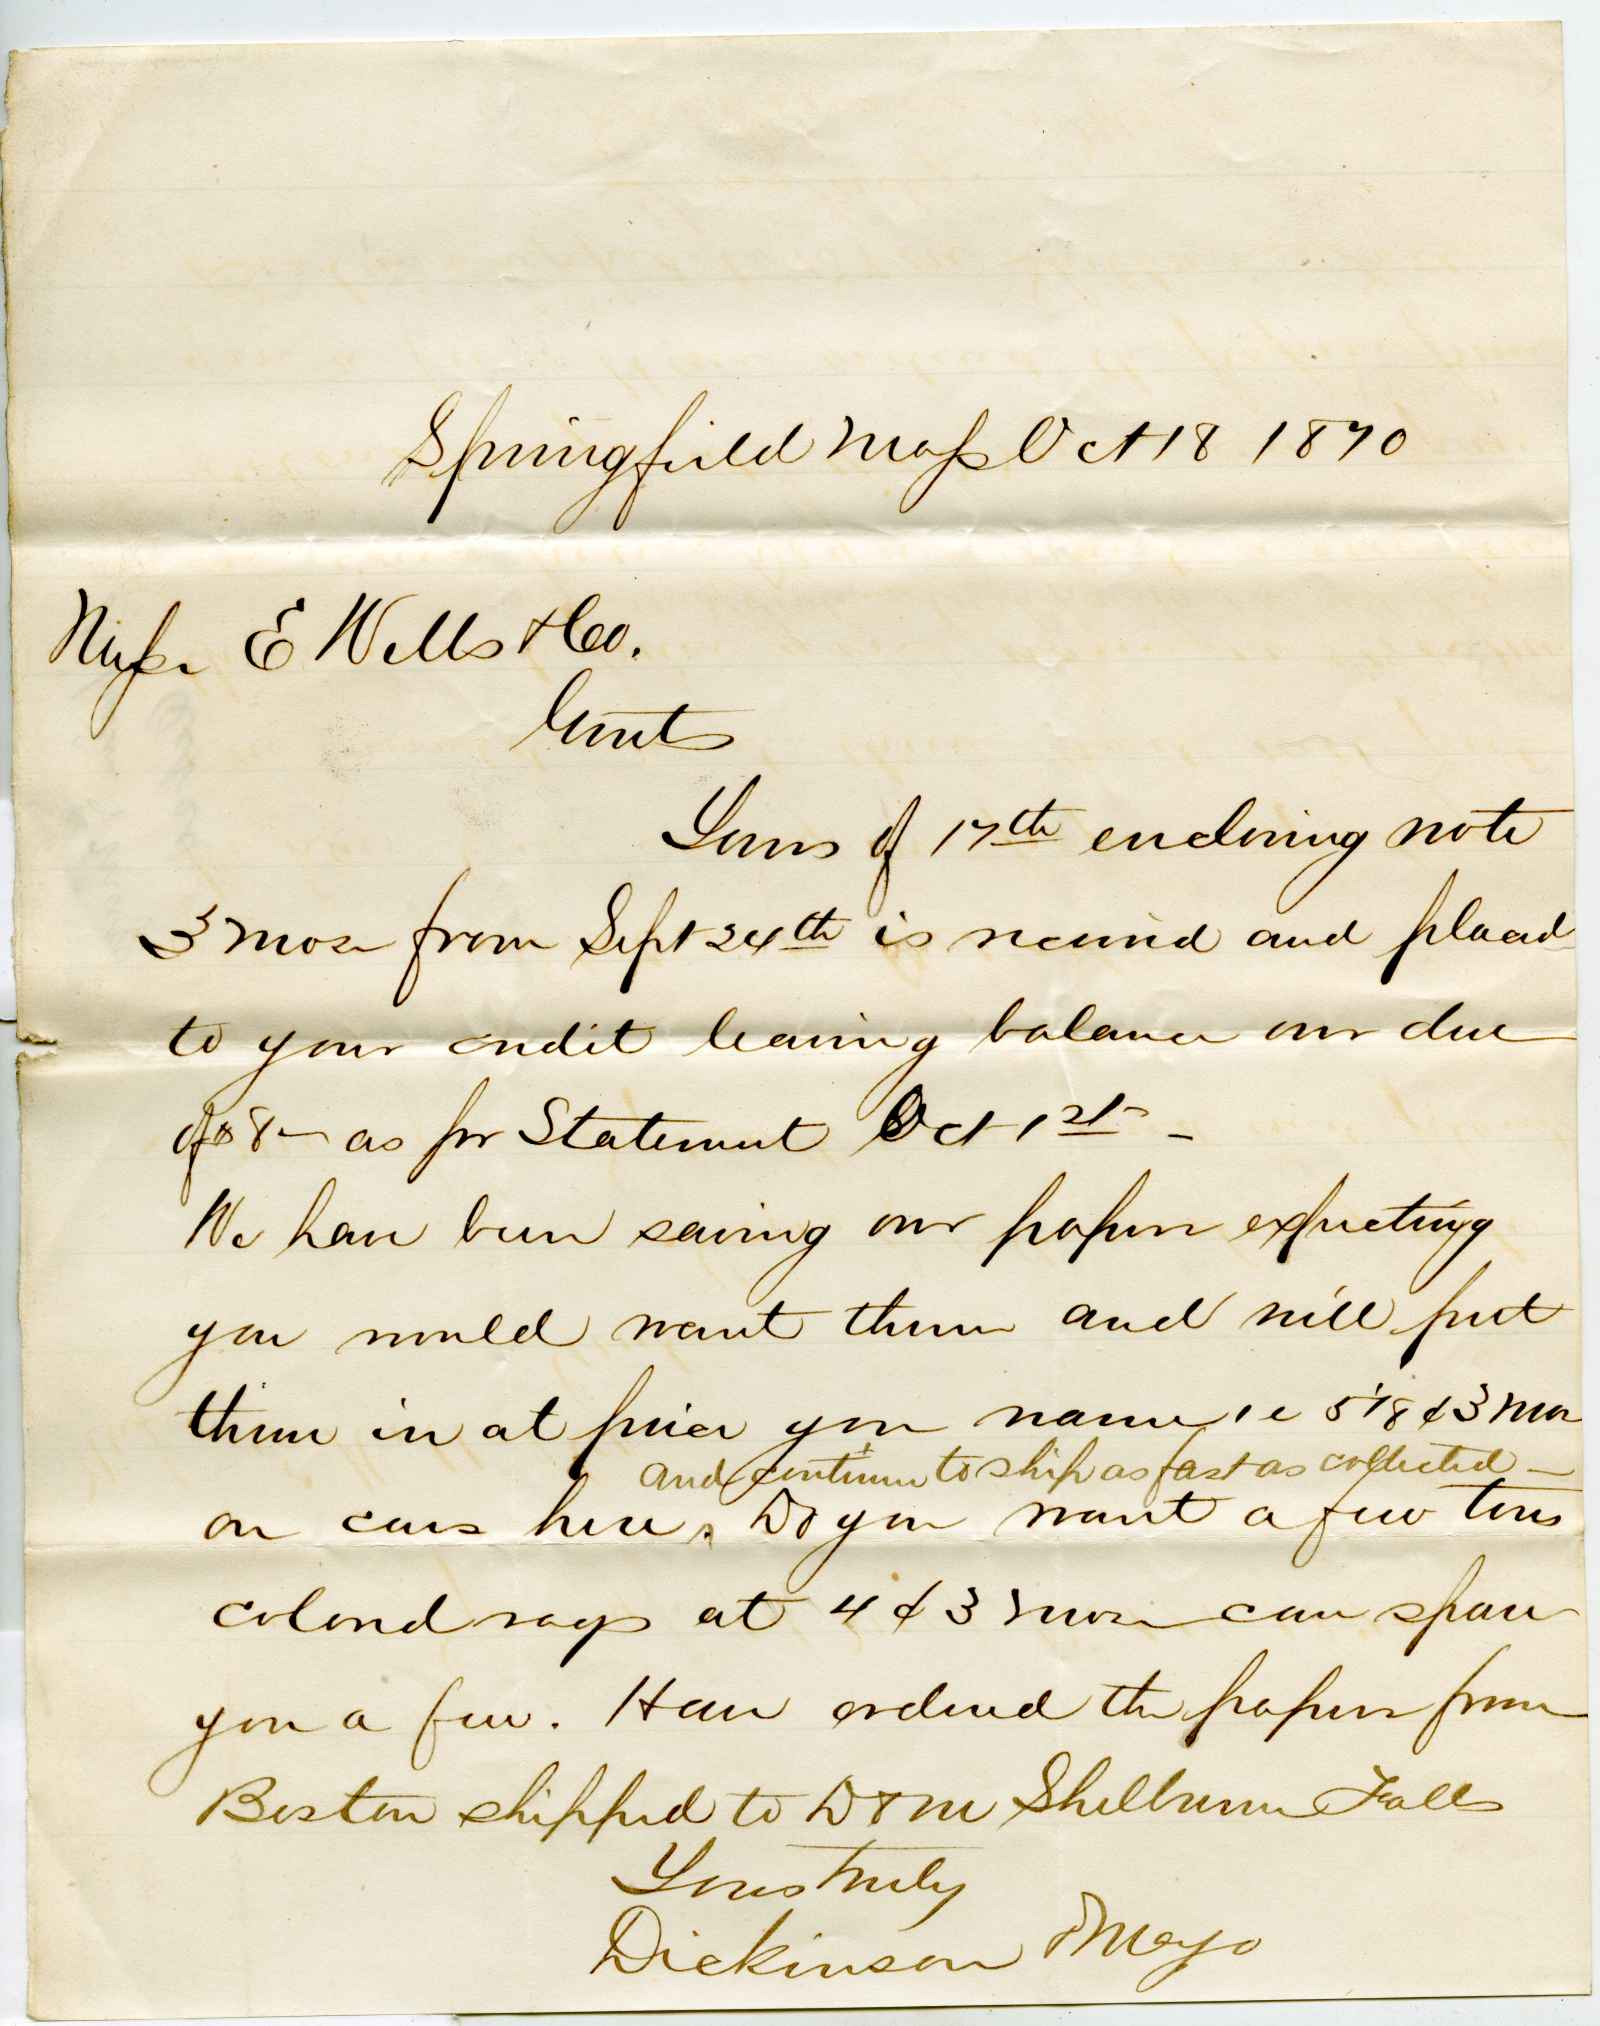 Springfield Mass Oct 18 1870
Messrs E Wells & Co.
Gents
Yours of 17th enclosing note
3 mos from Sept 24th is received and placed
to your credit leaving balance our due
of 8 as per Statement Oct 1st -
We have been saving our papers expecting
you would want them and will put
them in at price you name ie 5 1/8 ¢ 3 mos
and continue to ship as fast as collected -
on cars here. Do you want a few tons
colored rags at 4 ¢ 3 mos can spare
you a few. Have ordered the papers from
Boston shipped to D & M Shelburne Falls
Yours truly
Dickinson & Mayo